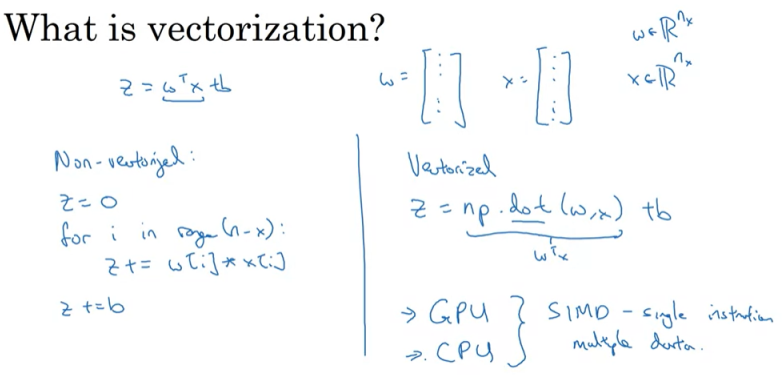 What is vectorization?
z = wᵀx + b
w = [⋮] x = [⋮] w ∈ ℝⁿˣ
x ∈ ℝⁿˣ
Non-vectorized:
z = 0
for i in range(n-x):
z += w[i] * x[i]
z += b
Vectorized
z = np.dot(w,x) + b
wᵀx
→ GPU } SIMD - single instruction
→ CPU multiple data.